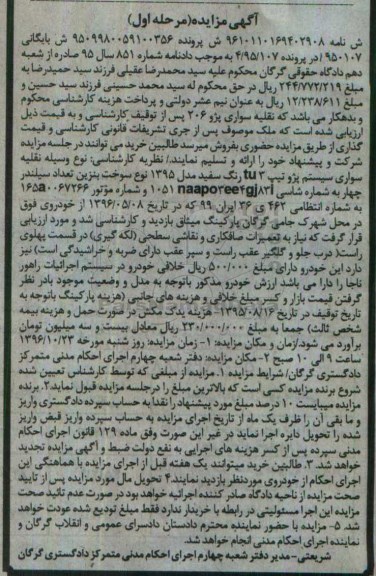 آگهی مزایده(مرحله اول)
ش نامه ۹۶۱۰۱۱۰۱۶۹۴۰۲۹۰۸ ش پرونده ۹۵۰۹۹۸۰۰۵۹۱۰۰۳۵۶ ش بایگانی
۹۵۰۱۰۷ در پرونده ۴/۹۵/۱۰۷ به موجب دادنامه شماره ۸۵۱ سال ۹۵ صادره از شعبه
دهم دادگاه حقوقی گرگان محکوم علیه سید محمدرضا عقیلی فرزند سید حمیدرضا به
مبلغ ۲۴۴/۷۷۲/۲۱۹ ریال در حق محکوم له سید محمد حسینی فرزند سید حسین و
مبلغ ۱۲/۲۳۸/۶۱۱ ریال به عنوان نیم عشر دولتی و پرداخت هزینه کارشناسی محکوم
و بدهکار می باشد که نقلیه سواری پژو ۲۰۶ پس از توقیف کارشناسی و به قیمت ذیل
ارزیابی شده است که ملک موصوف پس از جری تشریفات قانونی کارشناسی و قیمت
گذاری از طریق مزایده حضوری بفروش میرسد طالبین خرید می توانند در جلسه مزایده
شرکت و پیشنهاد خود را ارائه و تسلیم نمایند./ نظریه کارشناسی: نوع وسیله نقلیه
سواری سیستم پژو تیپ tu۳ رنگ سفید مدل ۱۳۹۵ نوع سوخت بنزین تعداد سیلندر
چهار به شماره شاسی naap۰۳ee۴gj۸۲۱۰۵۱ و شماره موتور ۱۶۵a۰۰۶۷۲۶۶
به شماره انتظامی ۴۶۲ ی ۳۶ ایران ۹۹ که در تاریخ ۱۳۹۶/۰۵/۰۸ از خودروی فوق
در محل شهرک جامی گرگان پارکینگ میثاق بازدید و کارشناسی شد و مورد ارزیابی
قرار گرفت که نیاز به تعمیرات صافکاری و نقاشی سطحی (لکه گیری) در قسمت پهلوی
راست( درب جلو و گلگیر عقب راست و سپر عقب دارای ضربه و خراشیدگی است) نیز
دارد این خودرو دارای مبلغ ۵۰۰/۰۰۰ ریال خلافی خودرو در سیستم اجرائیات راهور
ناجا را دارا می باشد ارزش خودرو مذکور باتوجه به مدل و وضعیت موجود بادر نظر
گرفتن قیمت بازار و کسر مبلغ خلافی و هزینه های جانبی (هزینه پارکینگ باتوجه به
تاریخ توقیف در تاریخ ۱۳۹۵/۰۸/۱۶- هزینه یدک مکش در صورت حمل و هزینه بیمه
شخص ثالث) جمعا به مبلغ ۲۳۰/۰۰۰/۰۰۰ ریال معادل بیست و سه میلیون تومان
برآورد می شود./زمان و مکان مزایده: ۱- زمان مزایده: روز شنبه مورخه ۱۳۹۶/۱۰/۲۳
ساعت ۹ الی ۱۰ صبح ۲- مکان مزایده: دفتر شعبه چهارم اجرای احکام مدنی متمرکز
دادگستری گرگان/ شرایط مزایده ۱. مزایده از مبلغی که توسط کارشناس تعیین شده
شروع برنده مزایده کسی است که بالاترین مبلغ را درجلسه مزایده قبول نماید۲. برنده
مزایده میبایست ۱۰ درصد مبلغ مورد پیشنهاد را نقدا به حساب سپرده دادگستری واریز
و ما بقی آن را ظرف یک ماه از تاریخ اجرای مزایده به حساب سپرده واریز قبض واریز
شده را تحویل دایره اجرا نماید در غیر این صورت وفق ماده ۱۲۹ قانون اجرای احکام
مدنی سپرده پس از کسر هزینه های اجرایی به نفع دولت ضبط و آگهی مزایده تجدید
خواهد شد. ۳. طالبین خرید میتوانند یک هفته قبل از اجرای مزایده با هماهنگی این
اجرای احکام از خودروی موردنظر بازدید نمایند.۴ تحویل مال مورد مزایده پس از تایید
صحت مزایده از ناحیه دادگاه صادر کننده اجرائیه خواهد بود در صورت عدم تائید صحت
مزایده این اجرا مسئولیتی در رابطه با خریدار ندارد فقط مبلغ تودیع شده عودت خواهد
شد. ۵- مزایده با حضور نماینده محترم دادستان دادسرای عمومی و انقلاب گرگان و
نماینده اجرای احکام مدنی انجام خواهد شد.
شریعتی- مدیر دفتر شعبه چهارم اجرای احکام مدنی متمرکز دادگستری گرگان